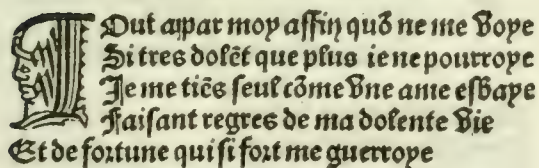 TOut apar moy affin quō ne me voye
Si tres dolēt que plus ie ne pourroye
Je me tiēs seul cōme vne ame esbaye
Faisant regres de ma dolente vie
Et de fortune qui si fort me guerroye